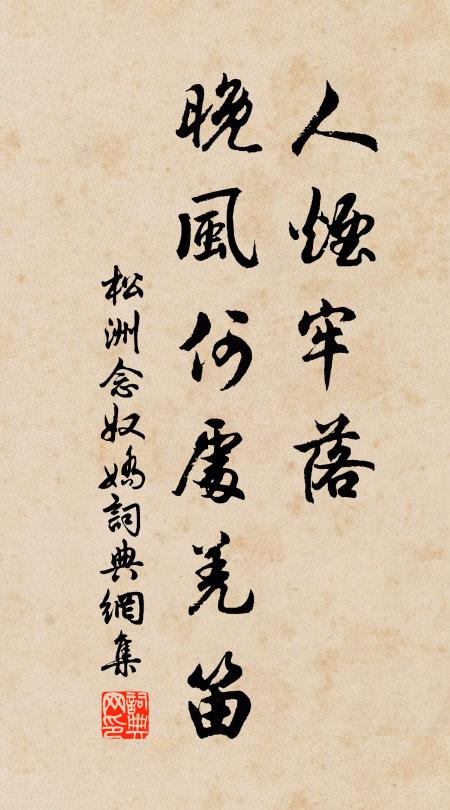 人煙牢落
晚風何處羌笛
松洲念奴嬌詞典網集
詞典网印